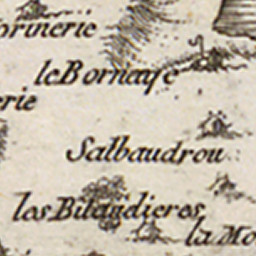 orinerie
le Bornaye
erie
Salbaudrou
les Bilaudieres
la Mo